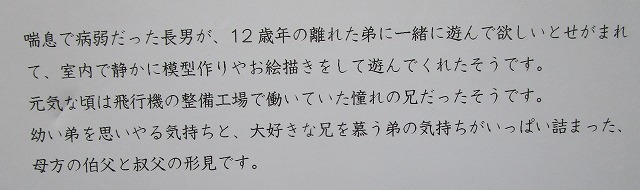 喘息で病弱だった長男が、12歳年の離れた弟に一緒に遊んで欲しいとせがまれ
て、室内で静かに模型作りやお絵描きをして遊んでくれたそうです。
元気な頃は飛行機の整備工場で働いていた憧れの兄だったそうです。
幼い弟を思いやる気持ちと、大好きな兄を慕う弟の気持ちがいっぱい詰まった、
母方の伯父と叔父の形見です。